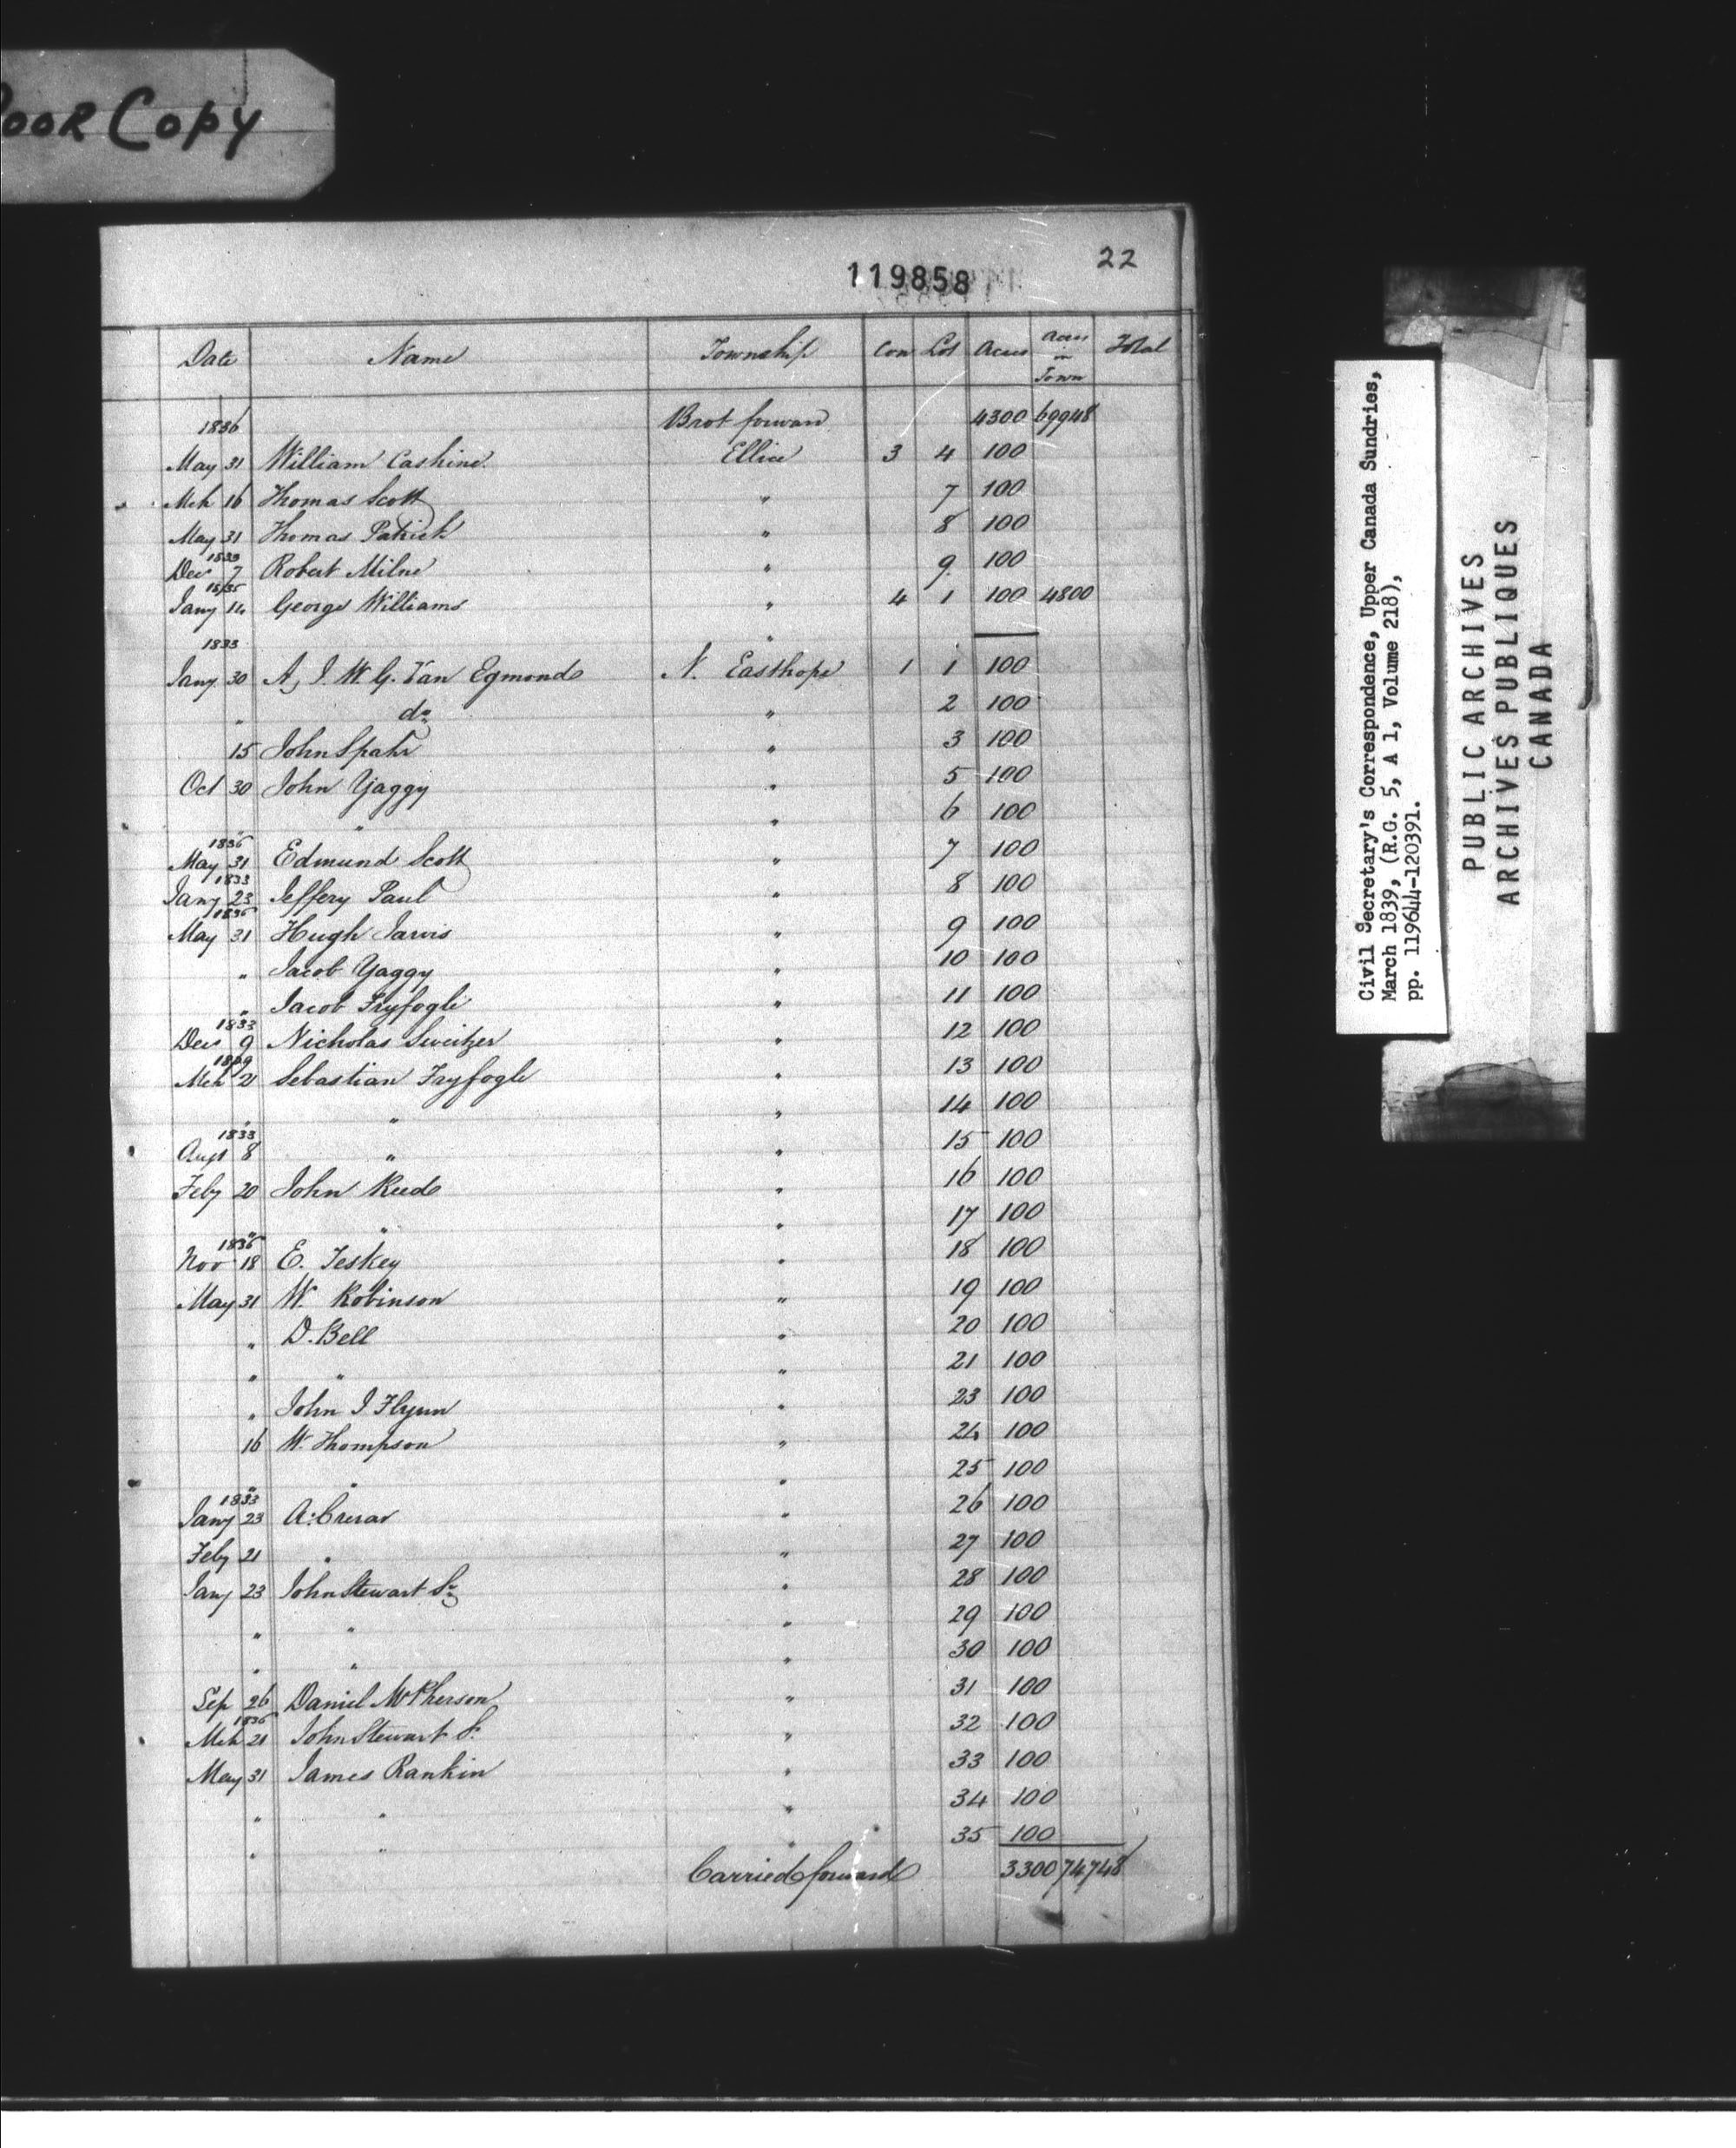 Poor Copy
22
119858
Date Name Township Con Lot Acres Acres in Town Total
1836 Brot forward 4300 69948
May 31 William Cashine Ellice 3 4 100
Mch 16 Thomas Scott " 7 100
May 31 Thomas Patrick " 8 100
1833
Dec 7 Robert Milne " 9 100
1835
Jany 14 George Williams " 4 1 100 4800
1833
Jany 30 A. J. W. G. Van Egmond N. Easthope 1 1 100
" do " 2 100
15 John Spahr " 3 100
Oct 30 John Yaggy " 5 100
" " " 6 100
1836
May 31 Edmund Scott " 7 100
1833
Jany 23 Jeffery Paul " 8 100
1836
May 31 Hugh Jarvis " 9 100
" Jacob Yaggy " 10 100
" Jacob Fryfogle " 11 100
1833
Dec 9 Nicholas Sweitzer " 12 100
1829
Mch 21 Sebastian Fryfogle " 13 100
" " " 14 100
1833
Augt 8 " " 15 100
Feby 20 John Reed " 16 100
" " " 17 100
1836
Nov 18 E. Teskey " 18 100
May 31 W. Robinson " 19 100
" D. Bell " 20 100
" " " 21 100
" John J Flynn " 23 100
16 W. Thompson " 24 100
" " " 25 100
1833
Jany 23 A. Crerar " 26 100
Feby 21 " " 27 100
Jany 23 John Stewart Sr " 28 100
" " " 29 100
" " " 30 100
Sep 26 Daniel McPherson " 31 100
1836
Mch 21 John Stewart Sr " 32 100
May 31 James Rankin " 33 100
" " " 34 100
" " " 35 100
Carried forward 3300 74748
Civil Secretary's Correspondence, Upper Canada Sundries,
March 1839, (R.G. 5, A 1, Volume 218),
pp. 119644-120391.
PUBLIC ARCHIVES
ARCHIVES PUBLIQUES
CANADA